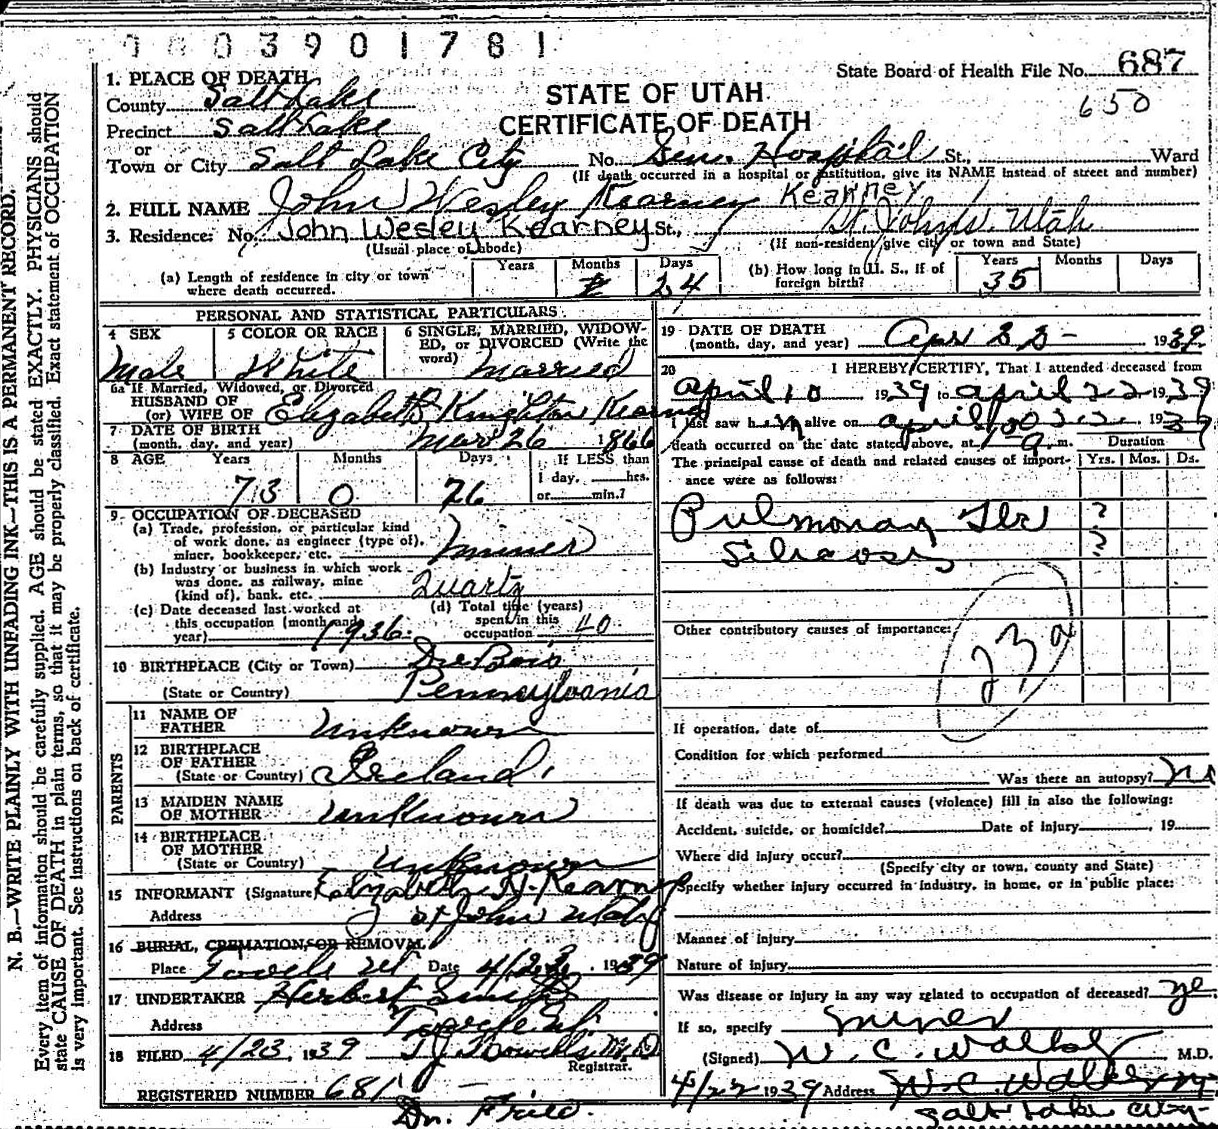 1003901781
State Board of Health File No. 687
650
STATE OF UTAH
CERTIFICATE OF DEATH
1. PLACE OF DEATH
County Salt Lake
Precinct Salt Lake
or
Town or City Salt Lake City No. Gen. Hospital St., Ward
(If death occurred in a hospital or institution, give its NAME instead of street and number)
2. FULL NAME John Wesley Kearney Kearney
3. Residence: No. John Wesley Kearney St., St. Johns, Utah
(Usual place of abode) (If non-resident give city or town and State)
(a) Length of residence in city or town where death occurred. Years Months Days 24
(b) How long in U. S., if of foreign birth? Years 35 Months Days
PERSONAL AND STATISTICAL PARTICULARS
4 SEX Male
5 COLOR OR RACE White
6 SINGLE, MARRIED, WIDOWED, or DIVORCED (Write the word) Married
6a If Married, Widowed, or Divorced
HUSBAND OF
(or) WIFE OF Elizabeth Knighton Kearney
7 DATE OF BIRTH
(month, day, and year) Mar 26 1866
8 AGE Years 73 Months 0 Days 26 If LESS than 1 day, hrs. or min.?
9 OCCUPATION OF DECEASED
(a) Trade, profession, or particular kind of work done, as engineer (type of), miner, bookkeeper, etc. Miner
(b) Industry or business in which work was done, as railway, mine (kind of), bank, etc. Quartz
(c) Date deceased last worked at this occupation (month and year) 1936
(d) Total time (years) spent in this occupation 40
10 BIRTHPLACE (City or Town) Du Bois
(State or Country) Pennsylvania
PARENTS
11 NAME OF FATHER Unknown
12 BIRTHPLACE OF FATHER
(State or Country) Ireland
13 MAIDEN NAME OF MOTHER Unknown
14 BIRTHPLACE OF MOTHER
(State or Country) Unknown
15 INFORMANT (Signature) Elizabeth N. Kearney
Address St John Utah
16 BURIAL, CREMATION, OR REMOVAL
Place Tooele Ut Date 4/23, 1939
17 UNDERTAKER Herbert Smith
Address Tooele Ut.
18 FILED 4/23, 1939 T J Howells M.D
Registrar.
REGISTERED NUMBER 681
19 DATE OF DEATH
(month, day, and year) Apr 22 - 1939
20 I HEREBY CERTIFY, That I attended deceased from
April 10 1939 to April 22 1939
I last saw him alive on April 22 1939
death occurred on the date stated above, at m. Duration
The principal cause of death and related causes of importance were as follows: Yrs. Mos. Ds.
Pulmonary Tbc ?
Silicosis ?
Other contributory causes of importance:
23a
If operation, date of
Condition for which performed
Was there an autopsy? no
If death was due to external causes (violence) fill in also the following:
Accident, suicide, or homicide? Date of injury , 19
Where did injury occur?
(Specify city or town, county and State)
Specify whether injury occurred in industry, in home, or in public place:
Manner of injury
Nature of injury
Was disease or injury in any way related to occupation of deceased? ye
If so, specify miner
(Signed) W. C. Walker M.D.
4/22 1939 Address W. C. Walker
Salt Lake City
N. B.—WRITE PLAINLY WITH UNFADING INK—THIS IS A PERMANENT RECORD.
Every item of information should be carefully supplied. AGE should be stated EXACTLY. PHYSICIANS should
state CAUSE OF DEATH in plain terms, so that it may be properly classified. Exact statement of OCCUPATION
is very important. See instructions on back of certificate.